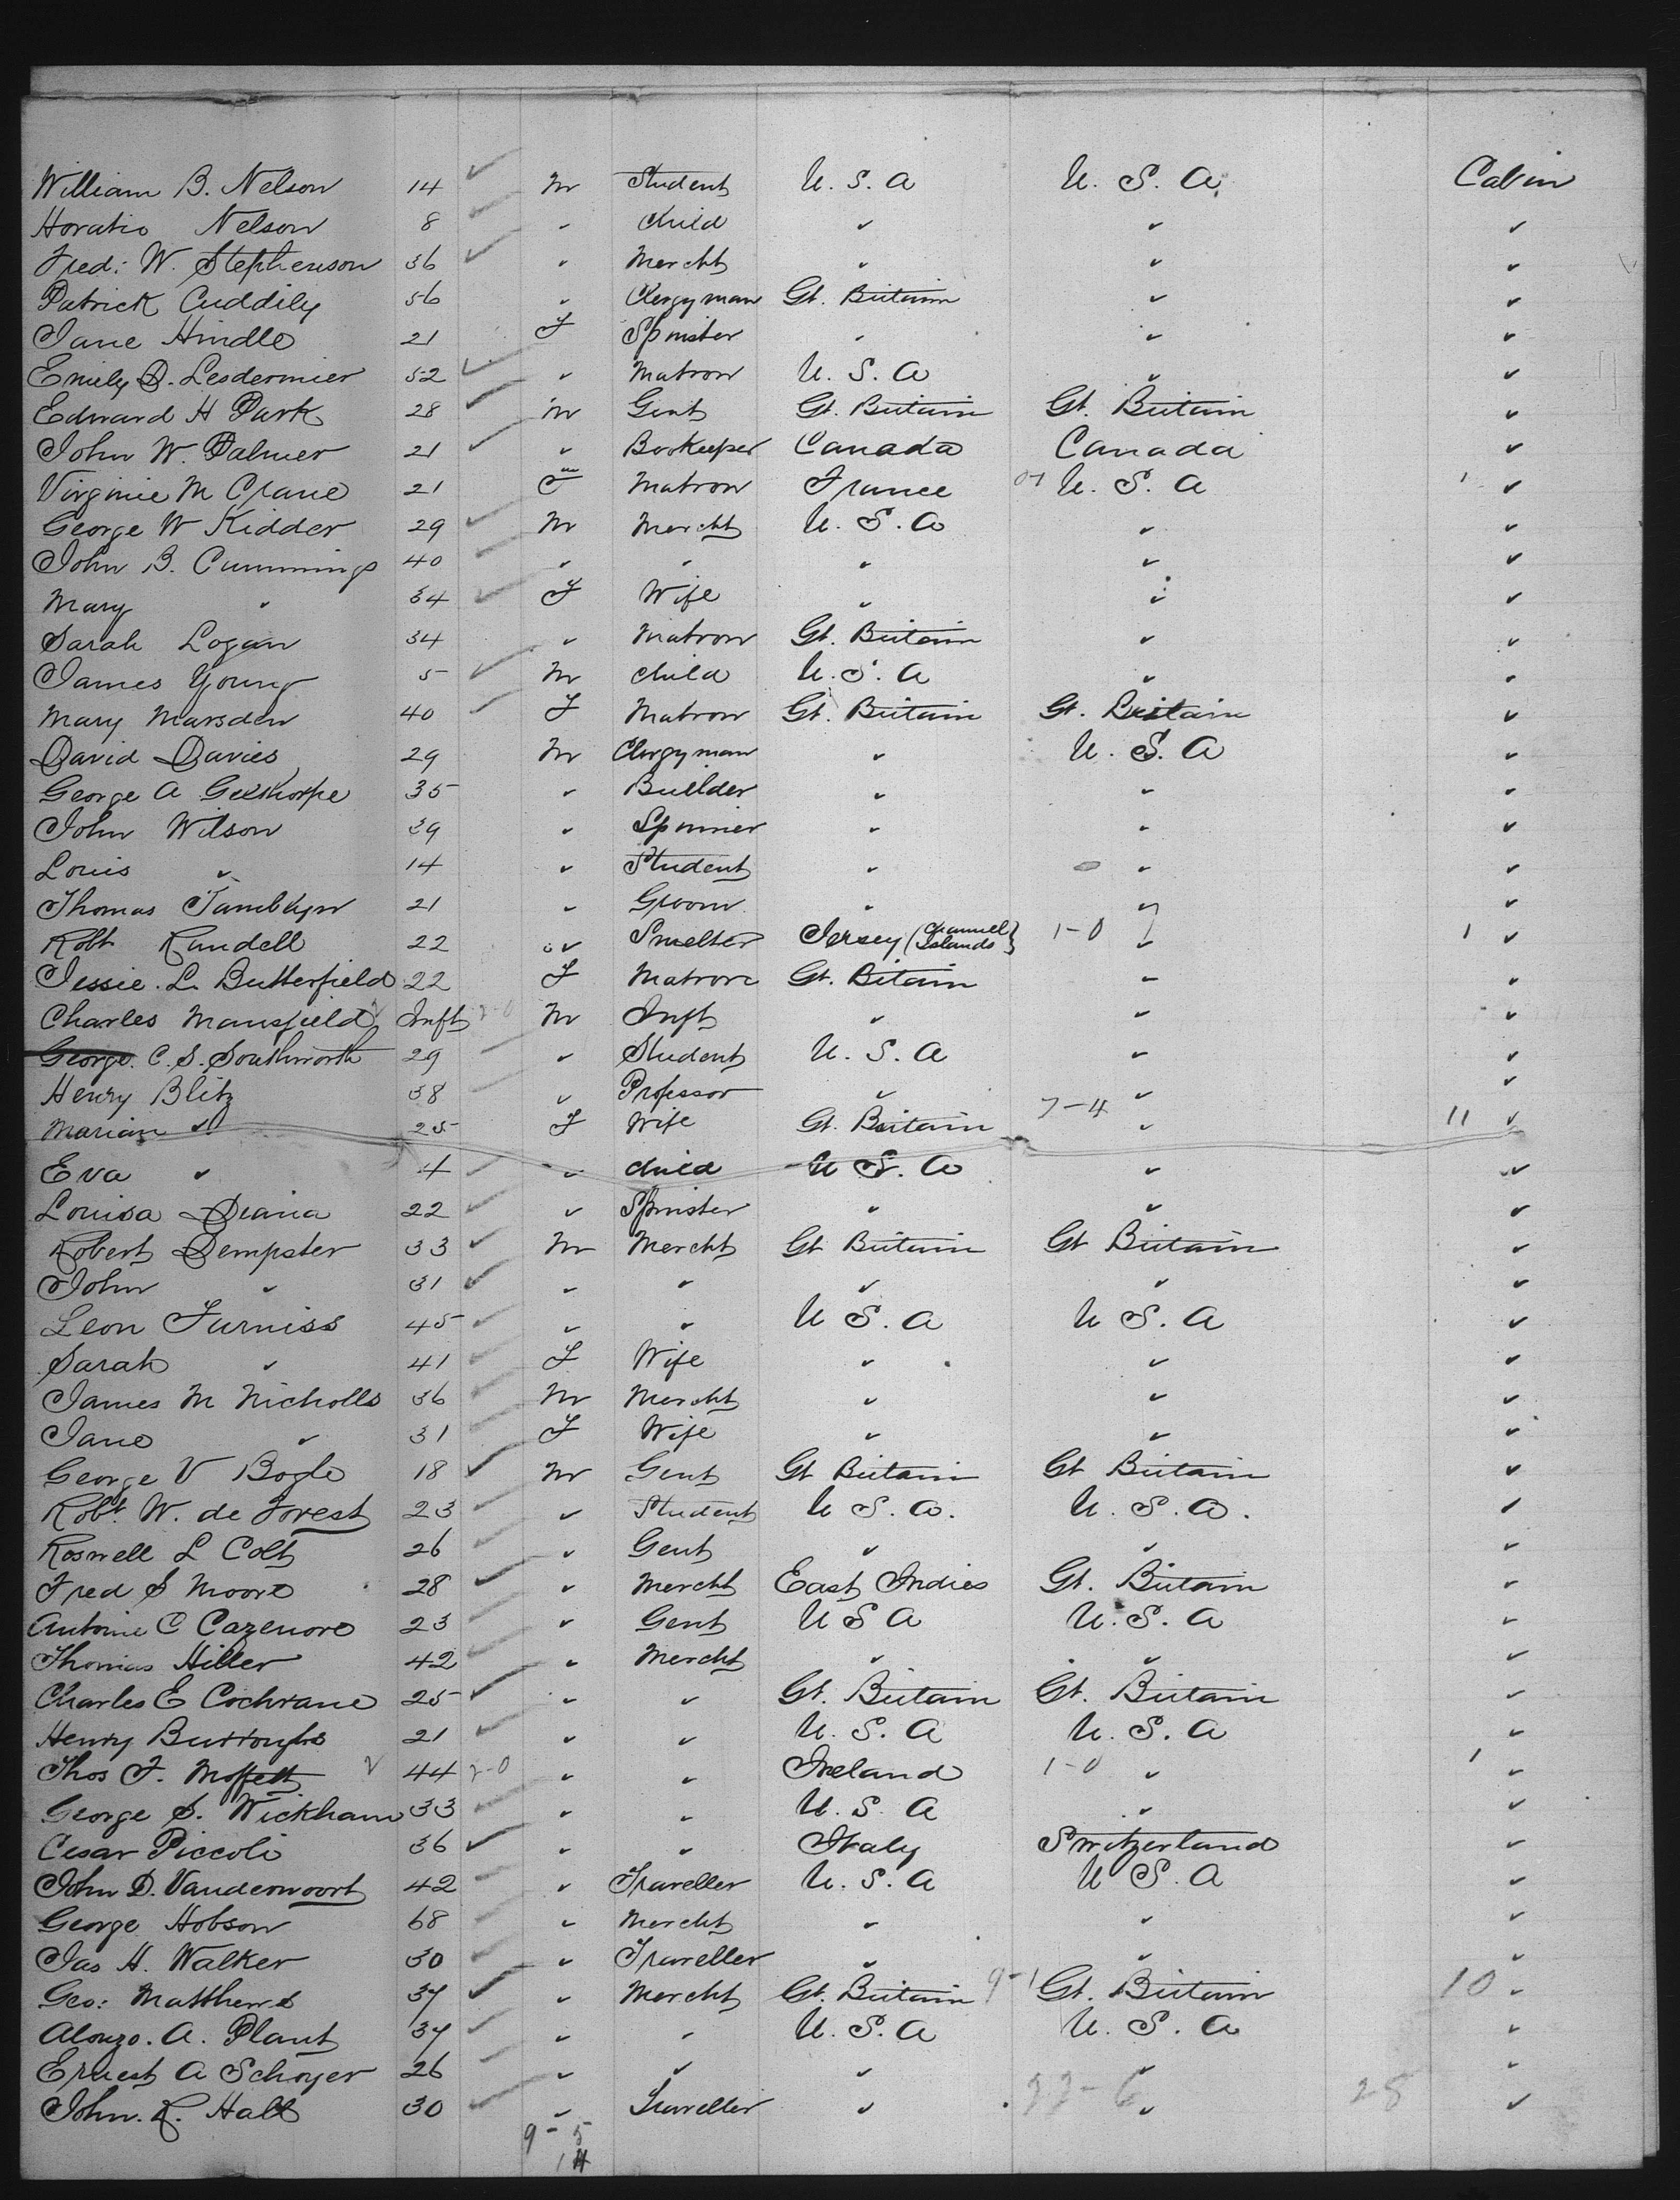 William B. Nelson 14 ✓ M Student U. S. A U. S. A Cabin
Horatio Nelson 8 ✓ " Child " " "
Fred: W. Stephenson 36 ✓ " Mercht " " "
Patrick Cuddily 56 " Clergyman Gt. Britain " "
Jane Hindle 21 F Spinster " " "
Emily D. Lesdernier 52 ✓ " Matron U. S. A " "
Edward H Park 28 ✓ M Gent Gt. Britain Gt. Britain "
John W. Palmer 21 ✓ " Bookeeper Canada Canada "
Virginie M Crane 21 F Matron France U. S. A "
George W Kidder 29 ✓ M Mercht U. S. A " "
John B. Cummings 40 ✓ " " " " "
Mary " 34 ✓ F Wife " " "
Sarah Logan 34 " Matron Gt. Britain " "
James Young 5 ✓ M Child U. S. A " "
Mary Marsden 40 ✓ F Matron Gt. Britain Gt. Britain "
David Davies 29 M Clergyman " U. S. A "
George A 35 " Builder " " "
John Wilson 39 " Spinner " " "
Louis " 14 " Student " " "
Thomas Tamblyn 21 " Groom " " "
Robt Rundell 22 " Smelter Jersey (Channel Islands) 1-0 " 1 "
Jessie. L. Butterfield 22 F Matron Gt. Bitain " "
Charles Mansfield Inft 2-0 M Inft " " "
George. C. S. Southworth 29 ✓ " Student U. S. A " "
Henry Blitz 38 ✓ " Professor " " "
Marian " 25 F Wife Gt. Britain 7-4 " 11 "
Eva " 4 ✓ " child U S. A " "
Louisa Diana 22 ✓ " Spinster " " "
Robert Dempster 33 ✓ M Mercht Gt Britain Gt Britain "
John " 31 ✓ " " " " "
Leon Furniss 45 ✓ " " U S. A U S. A "
Sarah " 41 ✓ F Wife " " "
James M Nicholls 36 ✓ M Mercht " " "
Jane " 31 ✓ F Wife " " "
George V Bogle 18 ✓ M Gent Gt Britain Gt Britain "
Robt. W. de Forest 23 ✓ " Student U S. A. U. S. A. "
Roswell L Colt 26 ✓ " Gent " " "
Fred S Moore 28 ✓ " Mercht East Indies Gt. Britain "
Antoine C Cazenove 23 ✓ " Gent U S A U. S. A "
Thomas Hiller 42 ✓ " Mercht " " "
Charles E Cochrane 25 ✓ " " Gt. Britain Gt. Britain "
Henry Burroughs 21 ✓ " " U. S. A U. S. A "
Thos F. Moffett ✓ 44 2-0 " " Ireland 1-0 " 1 "
George S. Wickham 33 ✓ " " U. S. A " "
Cesar Piccoli 36 ✓ " " Italy Switzerland "
John D. Vandervoort 42 ✓ " Traveller U. S. A U S. A "
George Hobson 68 ✓ " Mercht " " "
Jas H. Walker 30 ✓ " Traveller " " "
Geo: Matthews 37 ✓ " Mercht Gt. Britain 9-1 Gt. Britain 10 "
Alonzo. A. Plant 37 ✓ " " U. S. A U. S. A "
Ernest A Schoyer 26 ✓ " " " " "
John. R. Hall 30 ✓ " Traveller " " 28 "
9-5
14